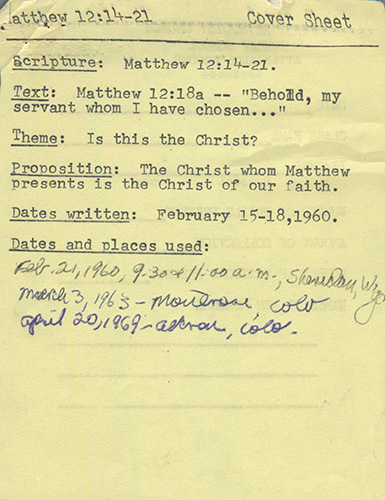 Matthew 12:14-21 Cover Sheet
Scripture: Matthew 12:14-21.
Text: Matthew 12:18a -- "Behold, my
servant whom I have chosen..."
Theme: Is this the Christ?
Proposition: The Christ whom Matthew
presents is the Christ of our faith.
Dates written: February 15-18,1960.
Dates and places used:
Feb. 21, 1960, 9:30 & 11:00 a.m., Sheridan, Wyo
march 3, 1963 - Montrose, Colo
april 20, 1969 - Akron, Colo.